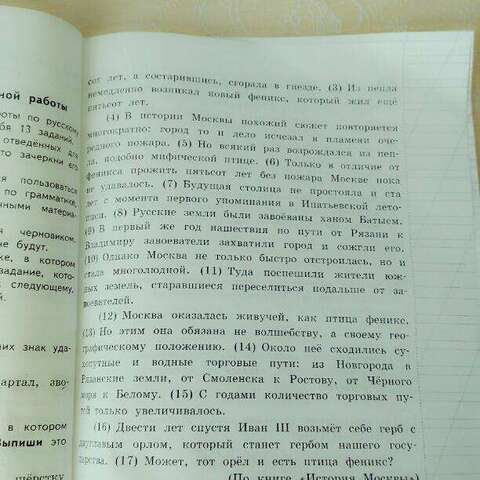 сот лет, а состарившись, сгорала в гнезде. (3) Из пепла
немедленно возникал новый феникс, который жил ещё
пятьсот лет.
(4) В истории Москвы похожий сюжет повторяется
многократно: город то и дело исчезал в пламени оче-
редного пожара. (5) Но всякий раз возрождался из пеп-
ла, подобно мифической птице. (6) Только в отличие от
феникса прожить пятьсот лет без пожара Москве пока
не удавалось. (7) Будущая столица не простояла и ста
лет с момента первого упоминания в Ипатьевской лето-
писи. (8) Русские земли были завоёваны ханом Батыем.
(9) В первый же год нашествия по пути от Рязани к
Владимиру завоеватели захватили город и сожгли его.
(10) Однако Москва не только быстро отстроилась, но и
стала многолюдной. (11) Туда поспешили жители юж-
ных земель, старавшиеся переселиться подальше от за-
воевателей.
(12) Москва оказалась живучей, как птица феникс.
(13) Но этим она обязана не волшебству, а своему гео-
графическому положению. (14) Около неё сходились су-
хопутные и водные торговые пути: из Новгорода в
Рязанские земли, от Смоленска к Ростову, от Чёрного
моря к Белому. (15) С годами количество торговых пу-
тей только увеличивалось.
(16) Двести лет спустя Иван III возьмёт себе герб с
двуглавым орлом, который станет гербом нашего госу-
дарства. (17) Может, тот орёл и есть птица феникс?
(По книге «История Москвы»)
ной работы
боты по русскому
бя 13 заданий.
отведённых для
зачеркни его
пользоваться
по грамматике,
ными материа-
черновиком.
не будут.
ке, в котором
задание, кото-
следующему,
ний.
них знак уда-
артал, зво-
в котором
Выпиши это
шёрстку